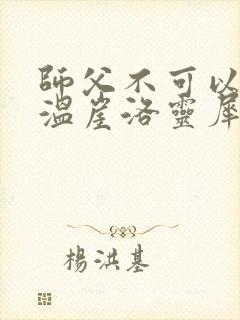 師父不可以
溫崖洛靈犀
楊洪基